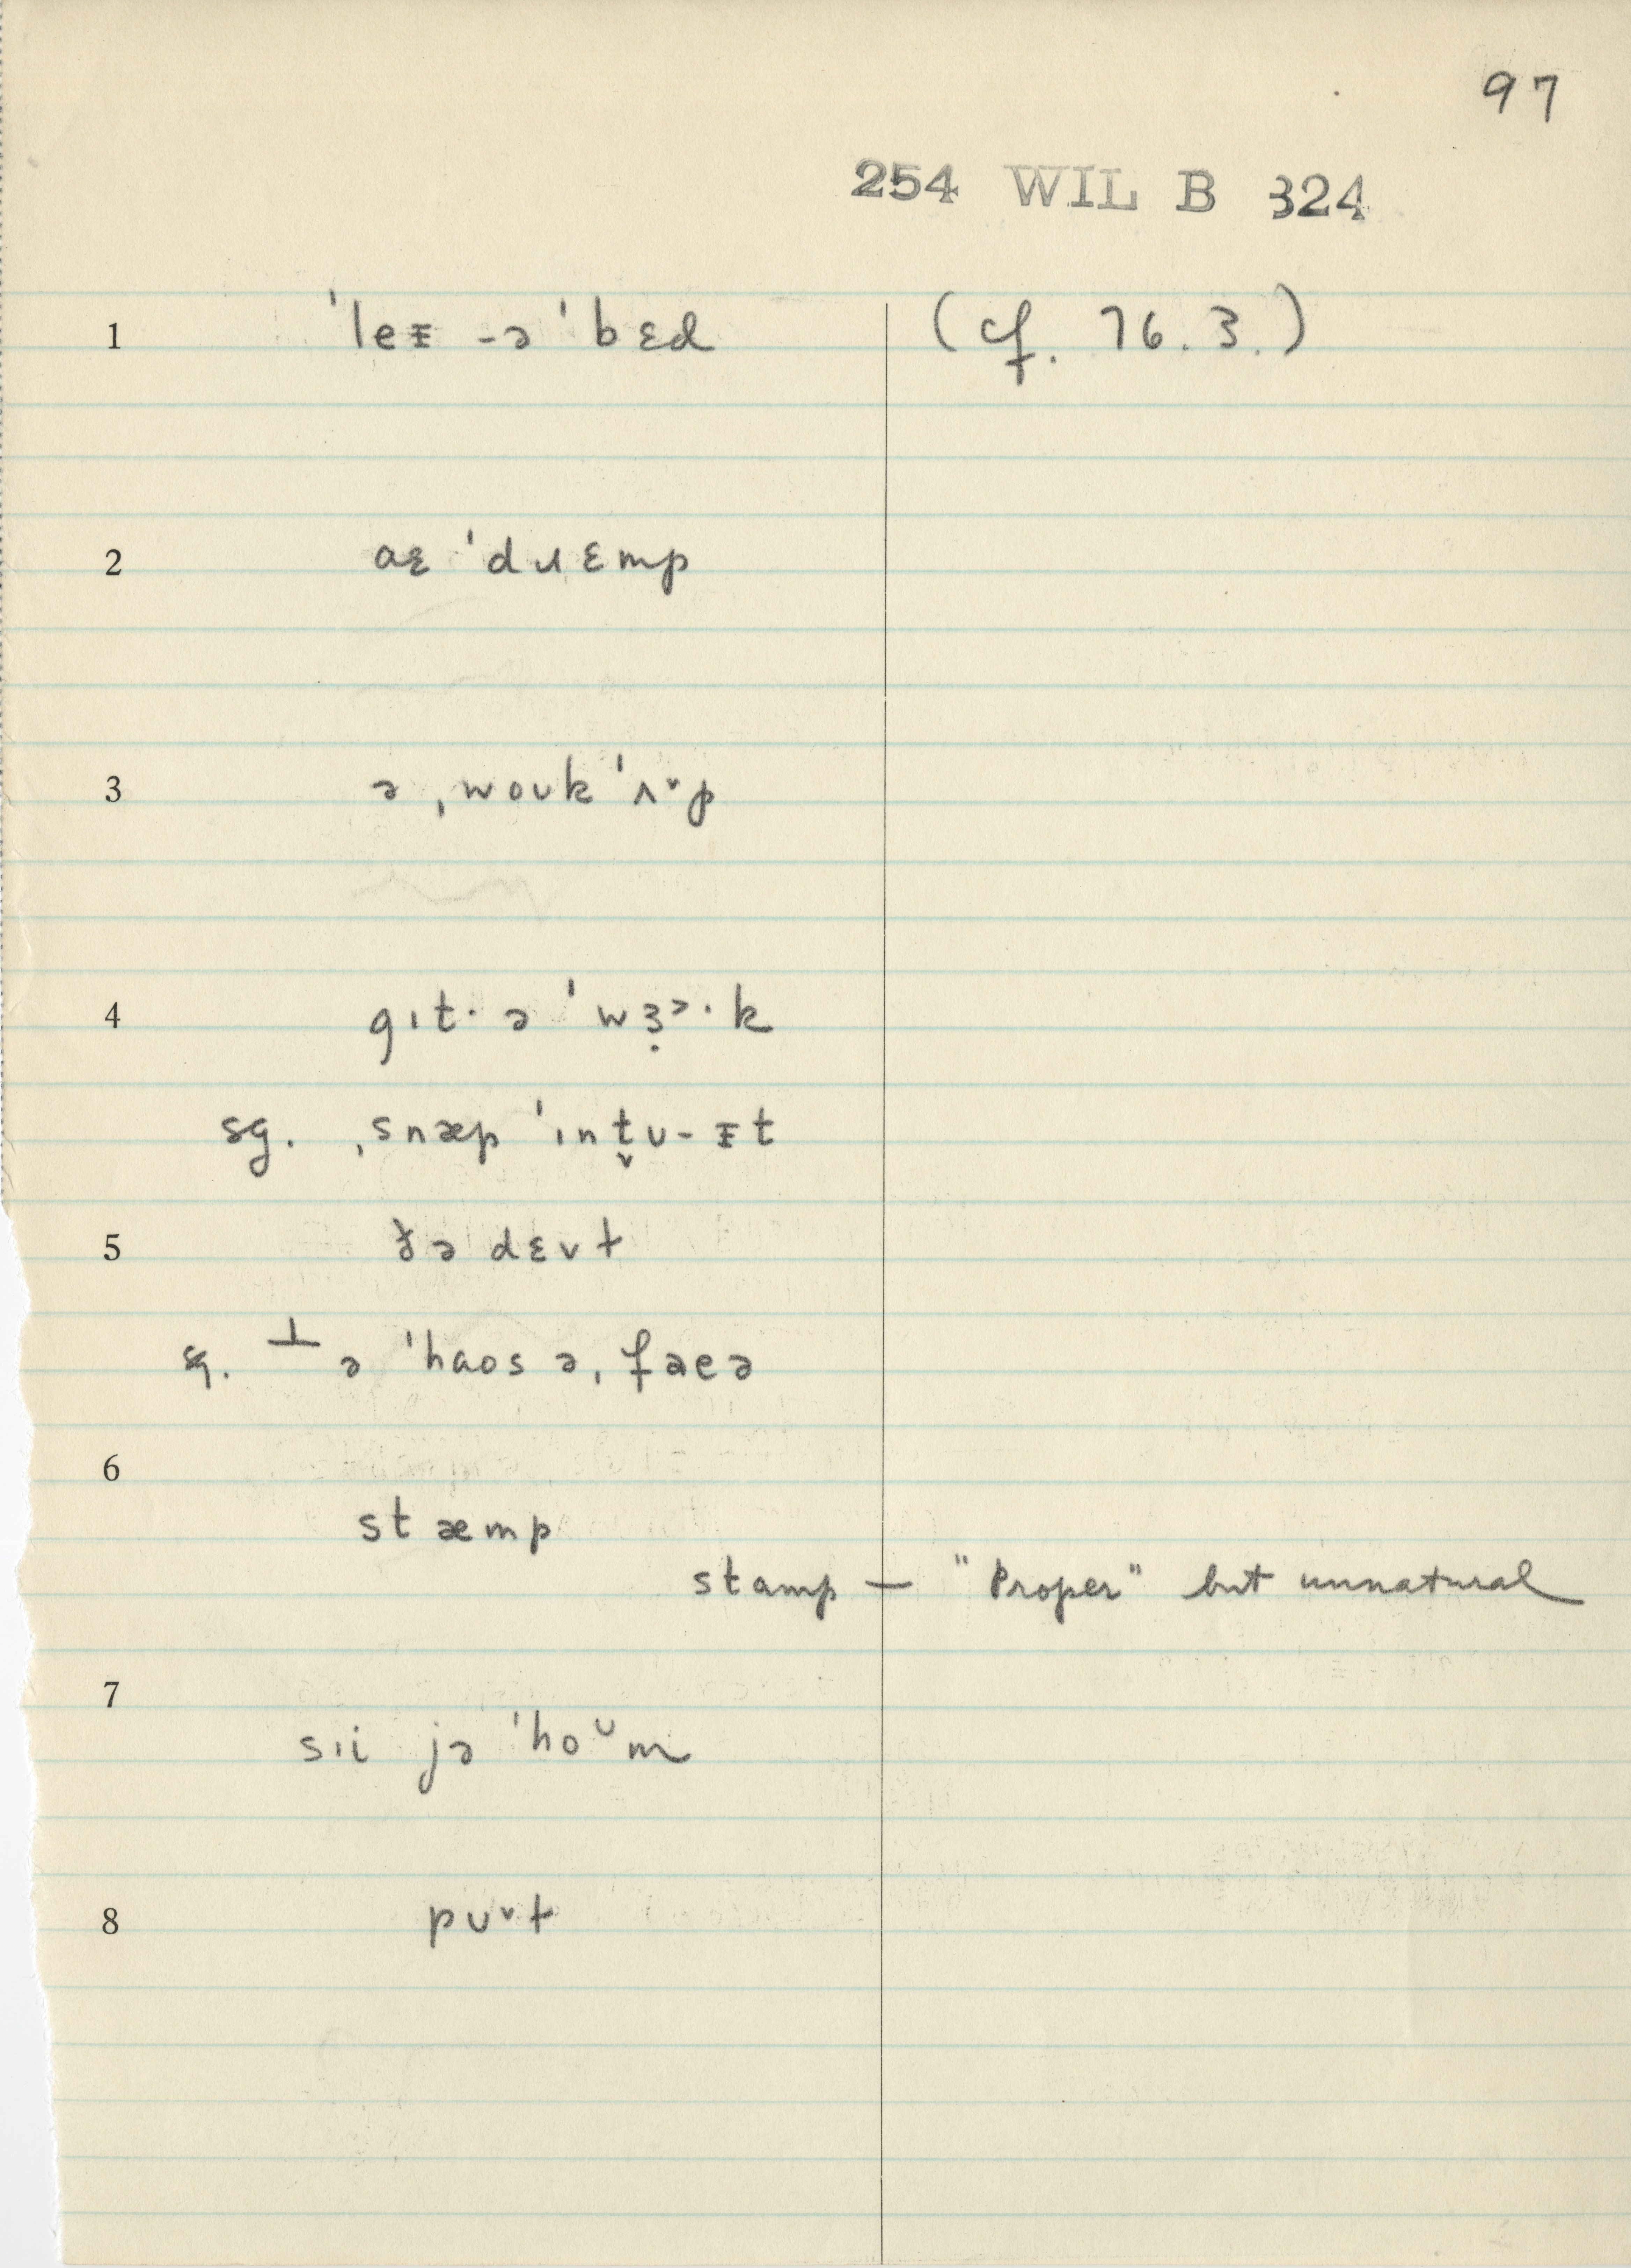 97
254 WIL B 324
1 ˈleᵻ -ə ˈbɛd (cf. 76.3.)
2 aɛ ˈdɹɛmp
3 ə ˌwoʊk ˈʌ˅p
4 gɪt· ə ˈwɜ̣˃·k
sg. ˌsnæp ˈɪnt̬ʊ-ᵻt
5 ðə dɛvɫ
sg. ⊥ə ˈhaos əˌfaeə
6
stæmp
stamp — "Proper" but unnatural
7
sɪi jə ˈhoᶷm
8 pʊ˅ɫ